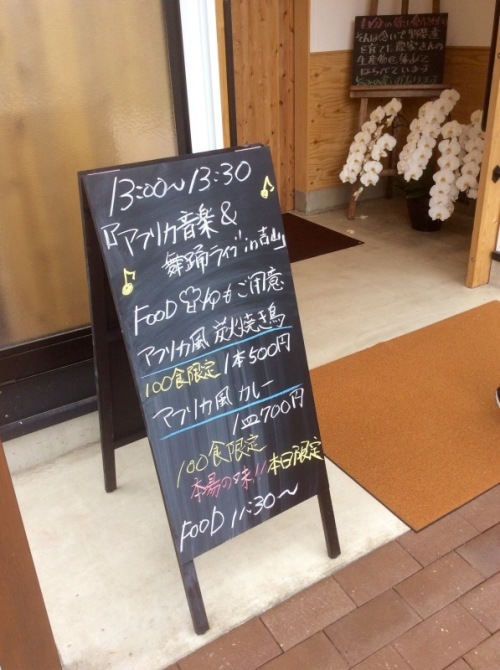 13:00～13:30
『アフリカ音楽&
舞踊ライブin吉山』
FOOD も ご用意
アフリカ風 炭火焼き鳥
100食限定 1本500円
アフリカ風 カレー
1皿700円
100食限定
本場の味!! 本日限定
FOOD 11:30～
そんな
野菜達
を育てた農家さんの
生産物に